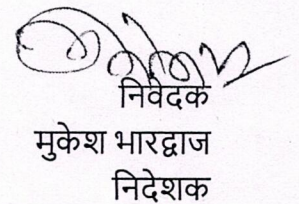 निवेदक
मुकेश भारद्वाज
निदेशक